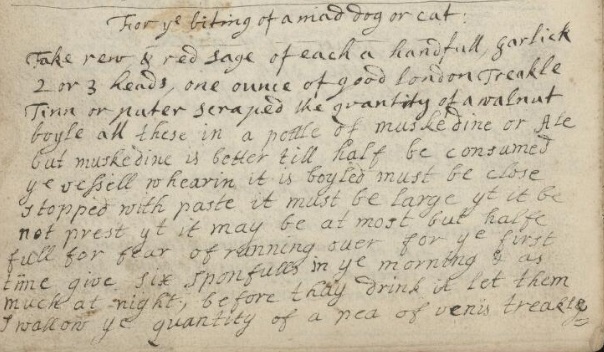 For ye biting of a mad dog or cat:
Take rew & red sage of each a handfull, garlick
2 or 3 heads, one ounce of good london Treakle
Tinn or puter scraped the quantity of a walnut
boyle all these in a pottle of muskedine or Ale
but muskedine is better till half be consumed
ye vessell whearin it is boyled must be close
stopped with paste it must be large yt it be
not prest yt it may be at most but halfe
full for fear of running over for ye first
time give six sponfulls in ye morning & as
much at night, before thay drink it let them
swallow ye quantity of a pea of venis treakle